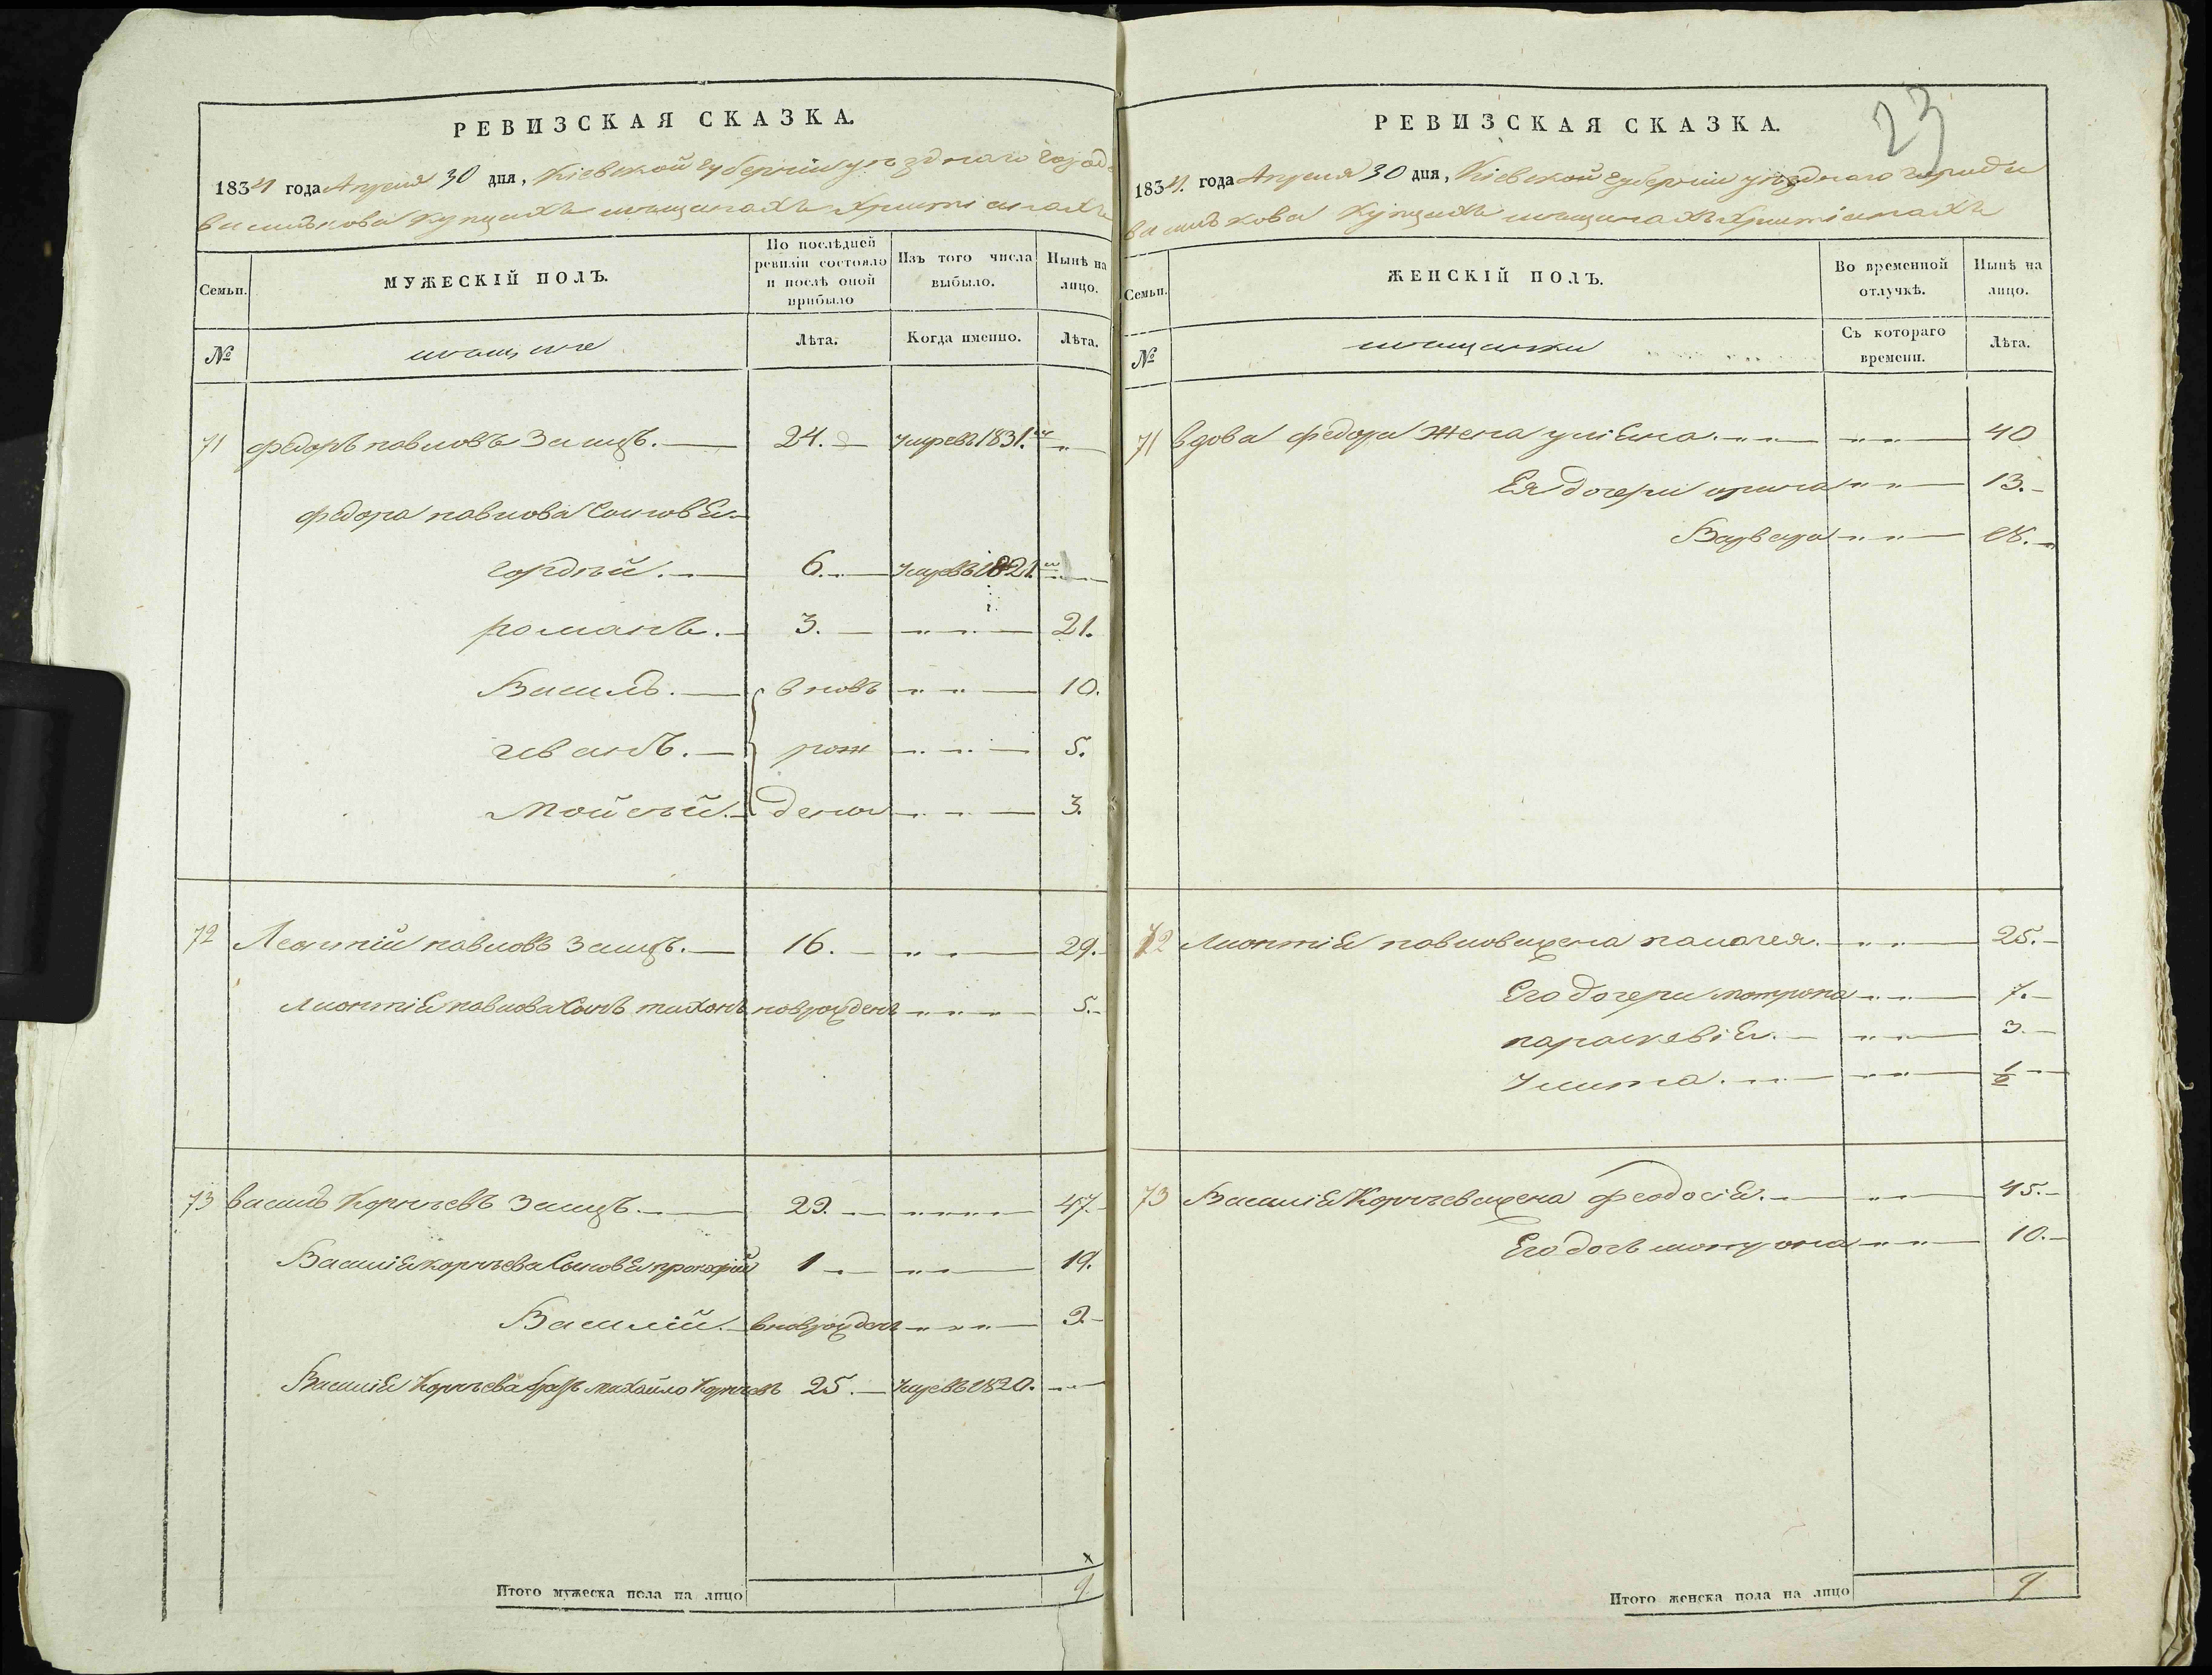 РЕВИЗСКАЯ СКАЗКА.
1834 года Апреля 30 дня, Кіевской губерніи уѣзднаго города
василькова купцахъ мѣщанахъ христіянахъ
Семьи.
МУЖЕСКІЙ ПОЛЪ.
По послѣдней ревизіи состояло и послѣ оной прибыло
Изъ того числа выбыло.
Нынѣ на лицо.
№
мѣщане
Лѣта.
Когда именно.
Лѣта.
71 федоръ павловъ Заецъ. 24. умревъ 1831.
федора павлова Сыновья
гордѣй. 6. умревъ 1821.
романъ. 3. 21.
Василь. вновь 10.
иванъ. рож 5.
мойсей. дены 3.
72 Леонтій павловъ Заецъ. 16. 29.
Лионтія павлова Сынъ тихонъ новрожденъ 5.
73 василь Корнѣевъ Заецъ. 29. 47.
Василія корнѣева Сыновья прокофій 1 19.
Василій. вноврожден 9.
Василія Корнѣева братъ михайло Корнѣевъ 25. умревъ 1820.
Итого мужеска пола на лицо 9
23
РЕВИЗСКАЯ СКАЗКА.
1834. года Апреля 30 дня, Кіевской губерніи уѣзднаго города
василькова купцахъ мѣщанахъ христіянахъ
Семьи.
ЖЕНСКІЙ ПОЛЪ.
Во временной отлучкѣ.
Нынѣ на лицо.
№
мѣщанки
Съ котораго времени.
Лѣта.
71 вдова федора жена уліяна. 40
Ея дочери ирина 13.
Варвара 18.
72 Лионтія павлова жена палагея. 25.
Его дочери мотрона 7.
параскевія. 3.
Улита. 1/2
73 Василія Корнѣева жена феодосія. 45.
Его дочь мотрона 10.
Итого женска пола на лицо 9